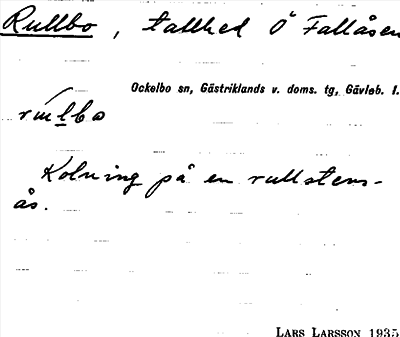 Rullbo, tallhed Ö Fallåsen
Ockelbo sn, Gästriklands v. doms. tg, Gävleb. l.
Kolning på en rullstens-
ås.
LARS LARSSON 1935